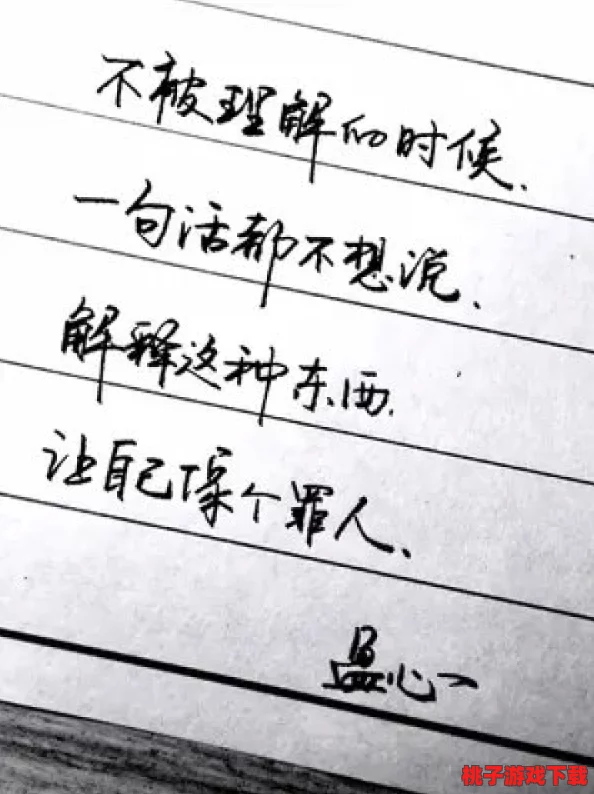 不被理解的时候、
一句话都不想说、
解释这种东西、
让自己像个罪人、
昷心一
桃子游戏下载